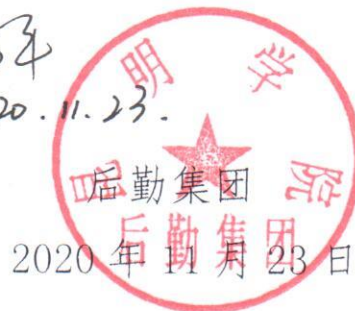 20.11.23.
昆明学院
后勤集团
后勤集团
2020年11月23日